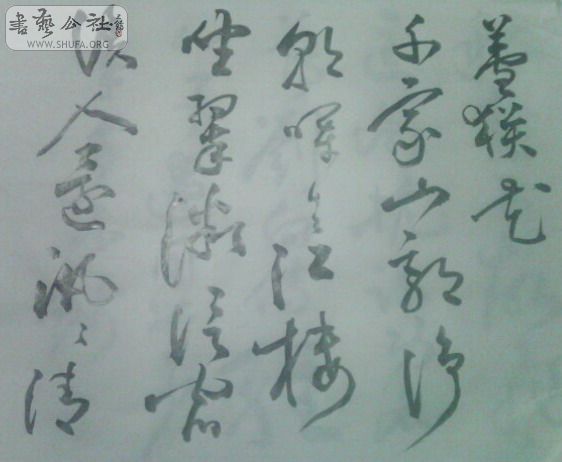 書藝公社
WWW.SHUFA.ORG
蘆荻花
千家山郭静
朝暉日々江樓
坐翠微信宿
漁人還泛々清